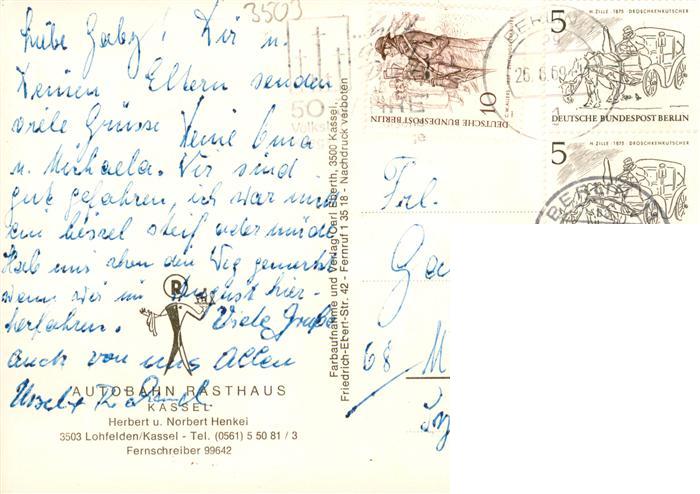 3503
Liebe Gaby! Dir u.
Deinen Eltern senden
viele Grüsse Deine Oma
u. Michaela. Wir sind
gut gefahren, ich war nur
ein bissel steif oder müde
Hab mir den Weg gemerkt
wenn wir im August hier-
herfahren. Viele Grüße
auch von uns Allen
R
AUTOBAHN RASTHAUS
KASSEL
Herbert u. Norbert Henkei
3503 Lohfelden/Kassel - Tel. (0561) 5 50 81 / 3
Fernschreiber 99642
Farbaufnahme und Verlag Carl Eberth, 3500 Kassel,
Friedrich-Ebert-Str. 42 - Fernruf 1 35 18 - Nachdruck verboten
50
10
DEUTSCHE BUNDESPOST BERLIN
BERLIN
26.6.69
5
H. ZILLE · 1875 DROSCHKENKUTSCHER
DEUTSCHE BUNDESPOST BERLIN
5
H. ZILLE · 1875 DROSCHKENKUTSCHER
BERLIN
Frl.
Ga
68 M